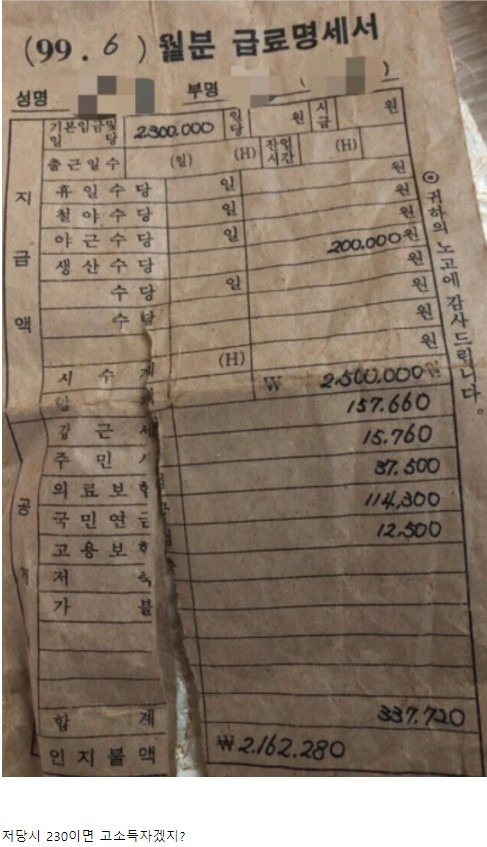 (99.6) 월분 급료명세서
성명 부명 ( )
기본임금및 일당 2300,000 일당 원 시급 원
출근일수 (일) (H) 잔업시간 (H)
지급액
휴일수당 일 원
철야수당 일 원
야근수당 일 원
생산수당 200,000원
수당 일 원
수당 원
(H) 원
₩ 2,500,000원
갑근세 157,660
주민 15,760
의료보험 37,500
국민연금 114,300
고용보험 12,500
공
저
가불
합계 337,720
인지불액 ₩2,162,280
⊙ 귀하의 노고에 감사드립니다.
저당시 230이면 고소득자겠지?